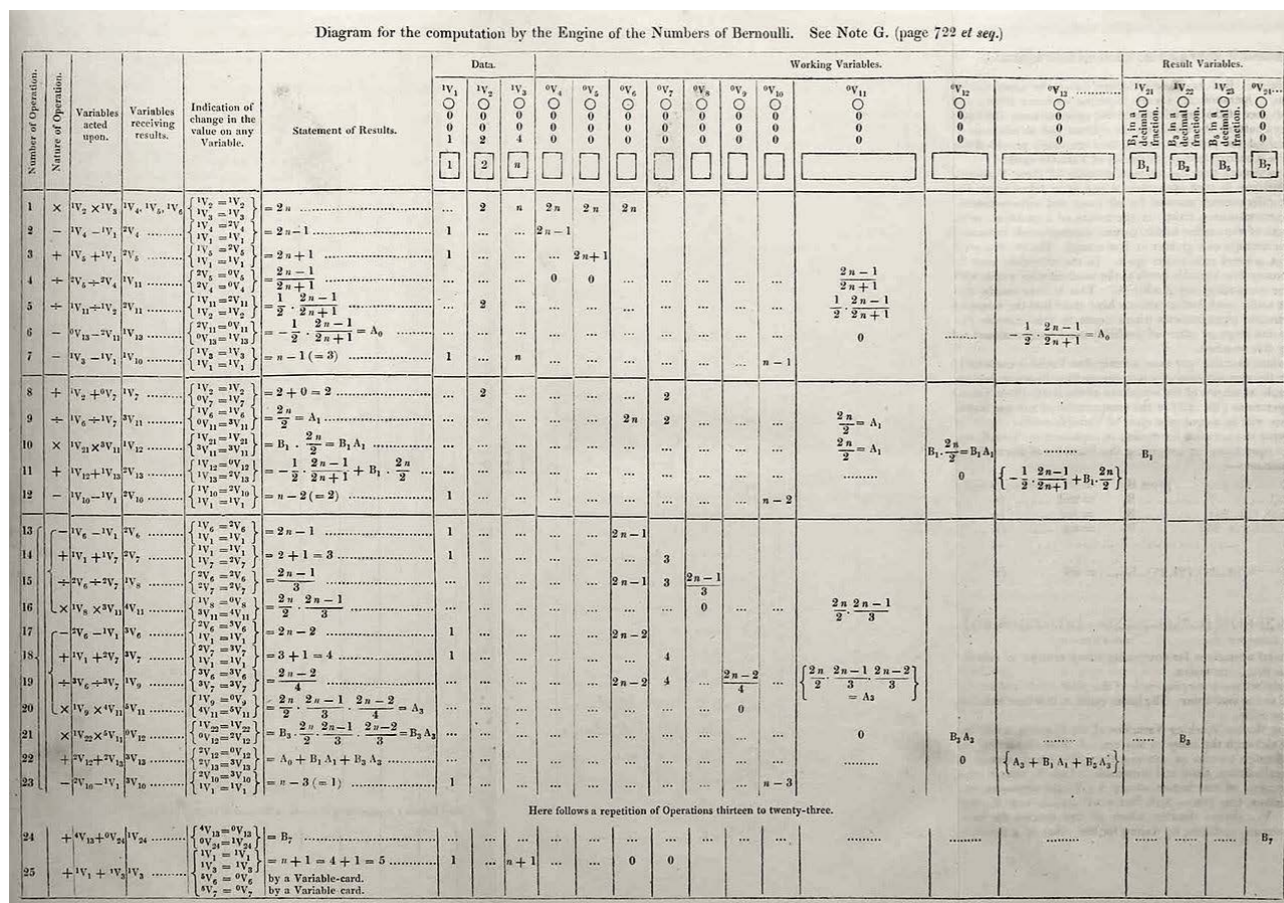 Diagram for the computation by the Engine of the Numbers of Bernoulli. See Note G. (page 722 et seq.)
Data. Working Variables. Result Variables.
Number of Operation. Nature of Operation. Variables acted upon. Variables receiving results. Indication of change in the value on any Variable. Statement of Results.
¹V₁ ¹V₂ ¹V₃ ⁰V₄ ⁰V₅ ⁰V₆ ⁰V₇ ⁰V₈ ⁰V₉ ⁰V₁₀ ⁰V₁₁ ⁰V₁₂ ⁰V₁₃ ............ ¹V₂₁ ¹V₂₂ ¹V₂₃ ⁰V₂₄...
○ ○ ○ ○ ○ ○ ○ ○ ○ ○ ○ ○ ○ ○ ○ ○ ○
0 0 0 0 0 0 0 0 0 0 0 0 0 B₁ in a decimal fraction. B₃ in a decimal fraction. B₅ in a decimal fraction. 0
0 0 0 0 0 0 0 0 0 0 0 0 0 0
1 2 4 0 0 0 0 0 0 0 0 0 0 0
1 2 n B₁ B₃ B₅ B₇
1 × ¹V₂ × ¹V₃ ¹V₄, ¹V₅, ¹V₆ { ¹V₂ = ¹V₂ ¹V₃ = ¹V₃ } = 2n ... 2 n 2n 2n 2n
2 − ¹V₄ − ¹V₁ ²V₄ { ¹V₄ = ²V₄ ¹V₁ = ¹V₁ } = 2n − 1 1 ... ... 2n − 1
3 + ¹V₅ + ¹V₁ ²V₅ { ¹V₅ = ²V₅ ¹V₁ = ¹V₁ } = 2n + 1 1 ... ... ... 2n + 1
4 ÷ ²V₅ ÷ ²V₄ ¹V₁₁ { ²V₅ = ⁰V₅ ²V₄ = ⁰V₄ } = (2n − 1)/(2n + 1) ... ... ... 0 0 ... ... ... ... ... (2n − 1)/(2n + 1)
5 ÷ ¹V₁₁ ÷ ¹V₂ ²V₁₁ { ¹V₁₁ = ²V₁₁ ¹V₂ = ¹V₂ } = 1/2 . (2n − 1)/(2n + 1) ... 2 ... ... ... ... ... ... ... ... 1/2 . (2n − 1)/(2n + 1)
6 − ⁰V₁₃ − ²V₁₁ ¹V₁₃ { ²V₁₁ = ⁰V₁₁ ⁰V₁₃ = ¹V₁₃ } = − 1/2 . (2n − 1)/(2n + 1) = A₀ ... ... ... ... ... ... ... ... ... ... 0 ........ − 1/2 . (2n − 1)/(2n + 1) = A₀
7 − ¹V₃ − ¹V₁ ¹V₁₀ { ¹V₃ = ¹V₃ ¹V₁ = ¹V₁ } = n − 1 (= 3) 1 ... n ... ... ... ... ... ... n − 1
8 + ¹V₂ + ⁰V₇ ¹V₇ { ¹V₂ = ¹V₂ ⁰V₇ = ¹V₇ } = 2 + 0 = 2 ... 2 ... ... ... ... 2
9 ÷ ¹V₆ ÷ ¹V₇ ³V₁₁ { ¹V₆ = ¹V₆ ⁰V₁₁ = ³V₁₁ } = 2n/2 = A₁ ... ... ... ... ... 2n 2 ... ... ... 2n/2 = A₁
10 × ¹V₂₁ × ³V₁₁ ¹V₁₂ { ¹V₂₁ = ¹V₂₁ ³V₁₁ = ³V₁₁ } = B₁ . 2n/2 = B₁ A₁ ... ... ... ... ... ... ... ... ... ... 2n/2 = A₁ B₁ . 2n/2 = B₁ A₁ ......... B₁
11 + ¹V₁₂ + ¹V₁₃ ²V₁₃ { ¹V₁₂ = ⁰V₁₂ ¹V₁₃ = ²V₁₃ } = − 1/2 . (2n − 1)/(2n + 1) + B₁ . 2n/2 ... ... ... ... ... ... ... ... ... ... ......... 0 { − 1/2 . (2n − 1)/(2n + 1) + B₁ . 2n/2 }
12 − ¹V₁₀ − ¹V₁ ²V₁₀ { ¹V₁₀ = ²V₁₀ ¹V₁ = ¹V₁ } = n − 2 (= 2) 1 ... ... ... ... ... ... ... ... n − 2
13 − ¹V₆ − ¹V₁ ²V₆ { ¹V₆ = ²V₆ ¹V₁ = ¹V₁ } = 2n − 1 1 ... ... ... ... 2n − 1
14 + ¹V₁ + ¹V₇ ²V₇ { ¹V₁ = ¹V₁ ¹V₇ = ²V₇ } = 2 + 1 = 3 1 ... ... ... ... ... 3
15 ÷ ²V₆ ÷ ²V₇ ¹V₈ { ²V₆ = ²V₆ ²V₇ = ²V₇ } = (2n − 1)/3 ... ... ... ... ... 2n − 1 3 (2n − 1)/3
16 × ¹V₈ × ³V₁₁ ⁴V₁₁ { ¹V₈ = ⁰V₈ ³V₁₁ = ⁴V₁₁ } = 2n/2 . (2n − 1)/3 ... ... ... ... ... ... ... 0 ... ... 2n/2 . (2n − 1)/3
17 − ²V₆ − ¹V₁ ³V₆ { ²V₆ = ³V₆ ¹V₁ = ¹V₁ } = 2n − 2 1 ... ... ... ... 2n − 2
18 + ¹V₁ + ²V₇ ³V₇ { ²V₇ = ³V₇ ¹V₁ = ¹V₁ } = 3 + 1 = 4 1 ... ... ... ... ... 4
19 ÷ ³V₆ ÷ ³V₇ ¹V₉ { ³V₆ = ³V₆ ³V₇ = ³V₇ } = (2n − 2)/4 ... ... ... ... ... 2n − 2 4 ... (2n − 2)/4 ... { 2n/2 . (2n − 1)/3 . (2n − 2)/3 = A₃ }
20 × ¹V₉ × ⁴V₁₁ ⁵V₁₁ { ¹V₉ = ⁰V₉ ⁴V₁₁ = ⁵V₁₁ } = 2n/2 . (2n − 1)/3 . (2n − 2)/4 = A₃ ... ... ... ... ... ... ... ... 0
21 × ¹V₂₂ × ⁵V₁₁ ⁰V₁₂ { ¹V₂₂ = ¹V₂₂ ⁰V₁₂ = ²V₁₂ } = B₃ . 2n/2 . (2n − 1)/3 . (2n − 2)/3 = B₃ A₃ ... ... ... ... ... ... ... ... ... ... 0 B₃ A₃ ......... ...... B₃
22 + ²V₁₂ + ²V₁₃ ³V₁₃ { ²V₁₂ = ⁰V₁₂ ²V₁₃ = ³V₁₃ } = A₀ + B₁ A₁ + B₃ A₃ ... ... ... ... ... ... ... ... ... ... ........ 0 { A₃ + B₁ A₁ + B₃ A₃ }
23 − ²V₁₀ − ¹V₁ ³V₁₀ { ²V₁₀ = ³V₁₀ ¹V₁ = ¹V₁ } = n − 3 (= 1) 1 ... ... ... ... ... ... ... ... n − 3
Here follows a repetition of Operations thirteen to twenty-three.
24 + ⁴V₁₃ + ⁰V₂₄ ¹V₂₄ { ⁴V₁₃ = ⁰V₁₃ ⁰V₂₄ = ¹V₂₄ } = B₇ ... ... ... ... ... ... ... ... ... ... ......... ......... ......... ...... ... ... B₇
25 + ¹V₁ + ¹V₃ ¹V₃ { ¹V₁ = ¹V₁ ¹V₃ = ¹V₃ ⁵V₆ = ⁰V₆ ⁵V₇ = ⁰V₇ } = n + 1 = 4 + 1 = 5 1 ... n + 1 ... ... 0 0
by a Variable-card.
by a Variable card.